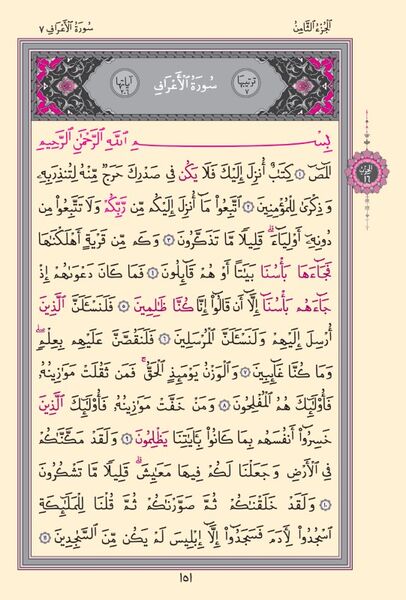 الجزء الثامن
سورة الأعراف ٧
ترتيبها ٧
سُورَةُ ٱلْأَعْرَافِ
آياتها ٢٠٦
بِسْمِ ٱللَّهِ ٱلرَّحْمَٰنِ ٱلرَّحِيمِ
الٓمٓصٓ ١ كِتَٰبٌ أُنزِلَ إِلَيْكَ فَلَا يَكُن فِي صَدْرِكَ حَرَجٌ مِّنْهُ لِتُنذِرَ بِهِۦ
وَذِكْرَىٰ لِلْمُؤْمِنِينَ ٢ ٱتَّبِعُوا۟ مَآ أُنزِلَ إِلَيْكُم مِّن رَّبِّكُمْ وَلَا تَتَّبِعُوا۟ مِن
دُونِهِۦٓ أَوْلِيَآءَ ۗ قَلِيلًا مَّا تَذَكَّرُونَ ٣ وَكَم مِّن قَرْيَةٍ أَهْلَكْنَٰهَا
فَجَآءَهَا بَأْسُنَا بَيَٰتًا أَوْ هُمْ قَآئِلُونَ ٤ فَمَا كَانَ دَعْوَىٰهُمْ إِذْ
جَآءَهُم بَأْسُنَآ إِلَّآ أَن قَالُوٓا۟ إِنَّا كُنَّا ظَٰلِمِينَ ٥ فَلَنَسْـَٔلَنَّ ٱلَّذِينَ
أُرْسِلَ إِلَيْهِمْ وَلَنَسْـَٔلَنَّ ٱلْمُرْسَلِينَ ٦ فَلَنَقُصَّنَّ عَلَيْهِم بِعِلْمٍ ۖ
وَمَا كُنَّا غَآئِبِينَ ٧ وَٱلْوَزْنُ يَوْمَئِذٍ ٱلْحَقُّ ۚ فَمَن ثَقُلَتْ مَوَٰزِينُهُۥ
فَأُو۟لَٰٓئِكَ هُمُ ٱلْمُفْلِحُونَ ٨ وَمَنْ خَفَّتْ مَوَٰزِينُهُۥ فَأُو۟لَٰٓئِكَ ٱلَّذِينَ
خَسِرُوٓا۟ أَنفُسَهُم بِمَا كَانُوا۟ بِـَٔايَٰتِنَا يَظْلِمُونَ ٩ وَلَقَدْ مَكَّنَّٰكُمْ
فِي ٱلْأَرْضِ وَجَعَلْنَا لَكُمْ فِيهَا مَعَٰيِشَ ۗ قَلِيلًا مَّا تَشْكُرُونَ
١٠ وَلَقَدْ خَلَقْنَٰكُمْ ثُمَّ صَوَّرْنَٰكُمْ ثُمَّ قُلْنَا لِلْمَلَٰٓئِكَةِ
ٱسْجُدُوا۟ لِـَٔادَمَ فَسَجَدُوٓا۟ إِلَّآ إِبْلِيسَ لَمْ يَكُن مِّنَ ٱلسَّٰجِدِينَ ١١
الحزب ١٦
١٥١